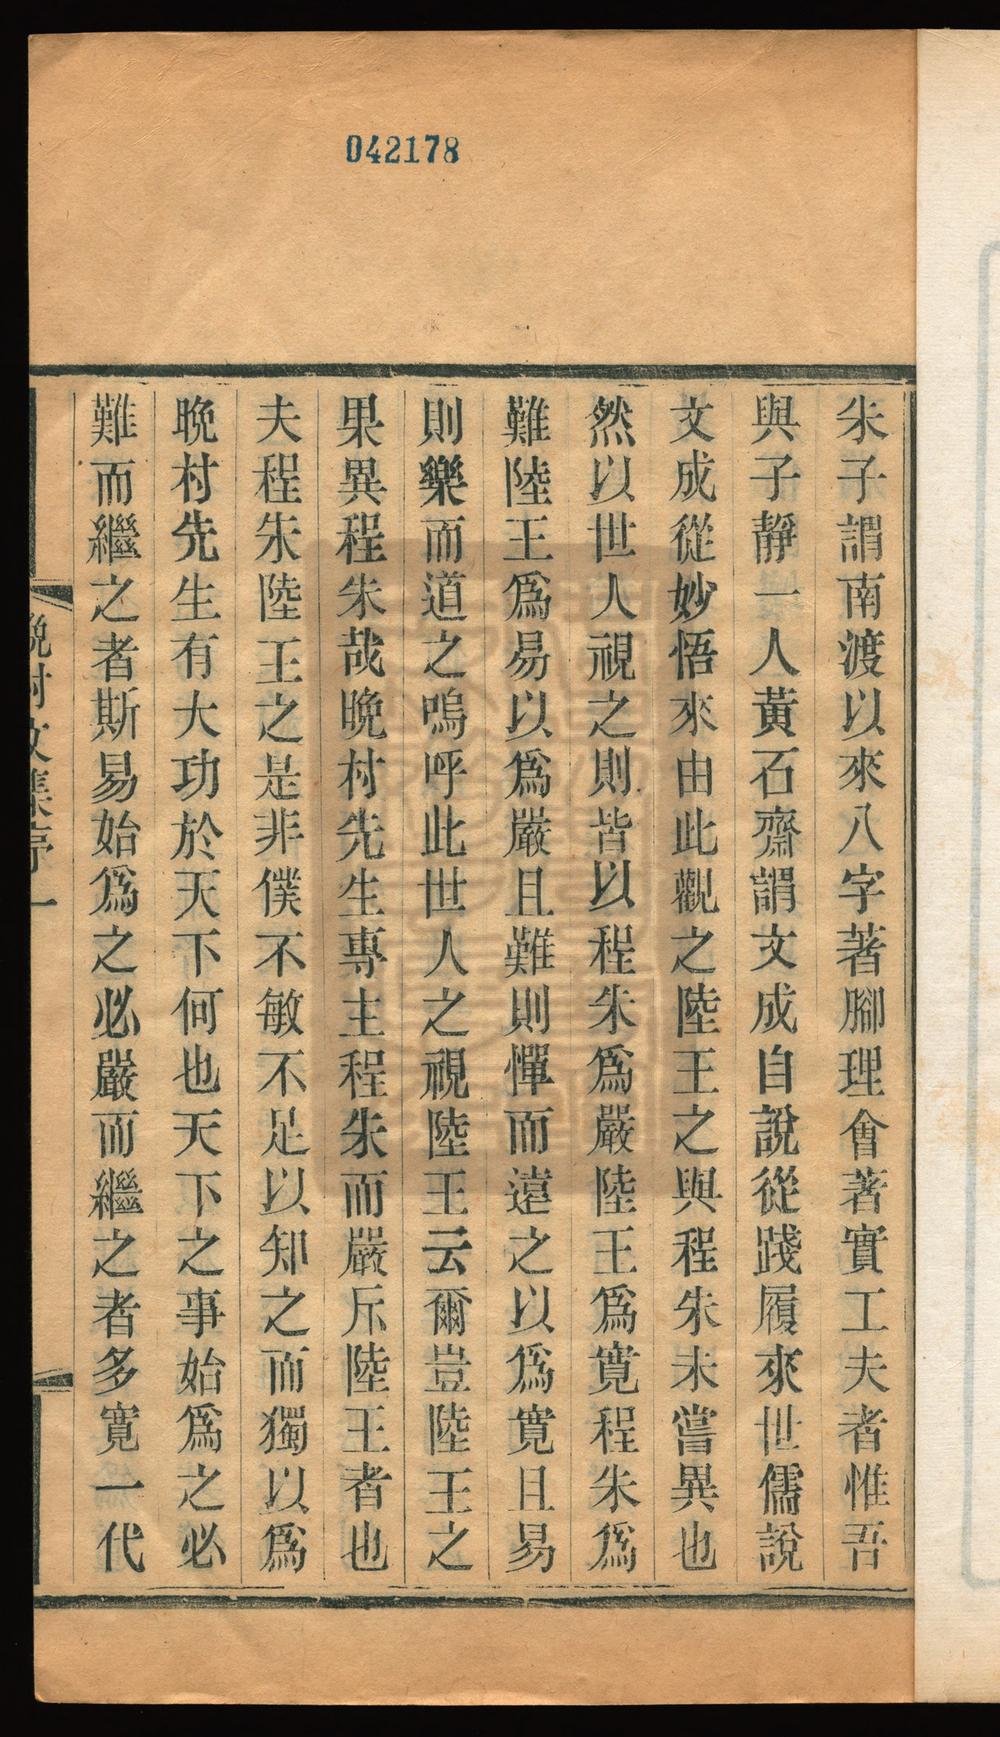 042178
朱子謂南渡以來八字著腳理會著實工夫者惟吾
與子靜一人黃石齋謂文成自說從踐履來世儒說
文成從妙悟來由此觀之陸王之與程朱未嘗異也
然以世人視之則皆以程朱爲嚴陸王爲寬程朱爲
難陸王爲易以爲嚴且難則憚而遠之以爲寬且易
則樂而道之嗚呼此世人之視陸王云爾豈陸王之
果異程朱哉晚村先生專主程朱而嚴斥陸王者也
夫程朱陸王之是非僕不敏不足以知之而獨以爲
晚村先生有大功於天下何也天下之事始爲之必
難而繼之者斯易始爲之必嚴而繼之者多寬一代
晚村文集序 一